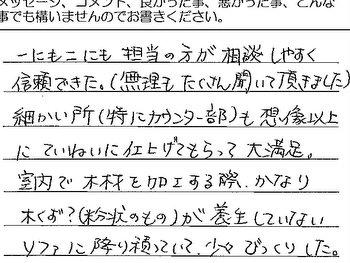 メッセージ、コメント、良かった事、悪かった事、どんな
事でも構いませんのでお書きください。
一にも二にも 担当の方が 相談しやすく
信頼できた。(無理もたくさん聞いて頂きました)
細かい所(特にカウンター部)も 想像以上
に ていねいに仕上げてもらって 大満足。
室内で 木材を加工する際、かなり
木くず?(粉状のもの)が 養生していない
ソファに降り積っていて、少々 びっくりした。